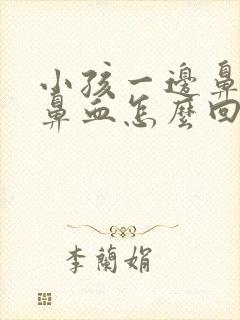 小孩一邊鼻
鼻血怎麼回
李蘭娟